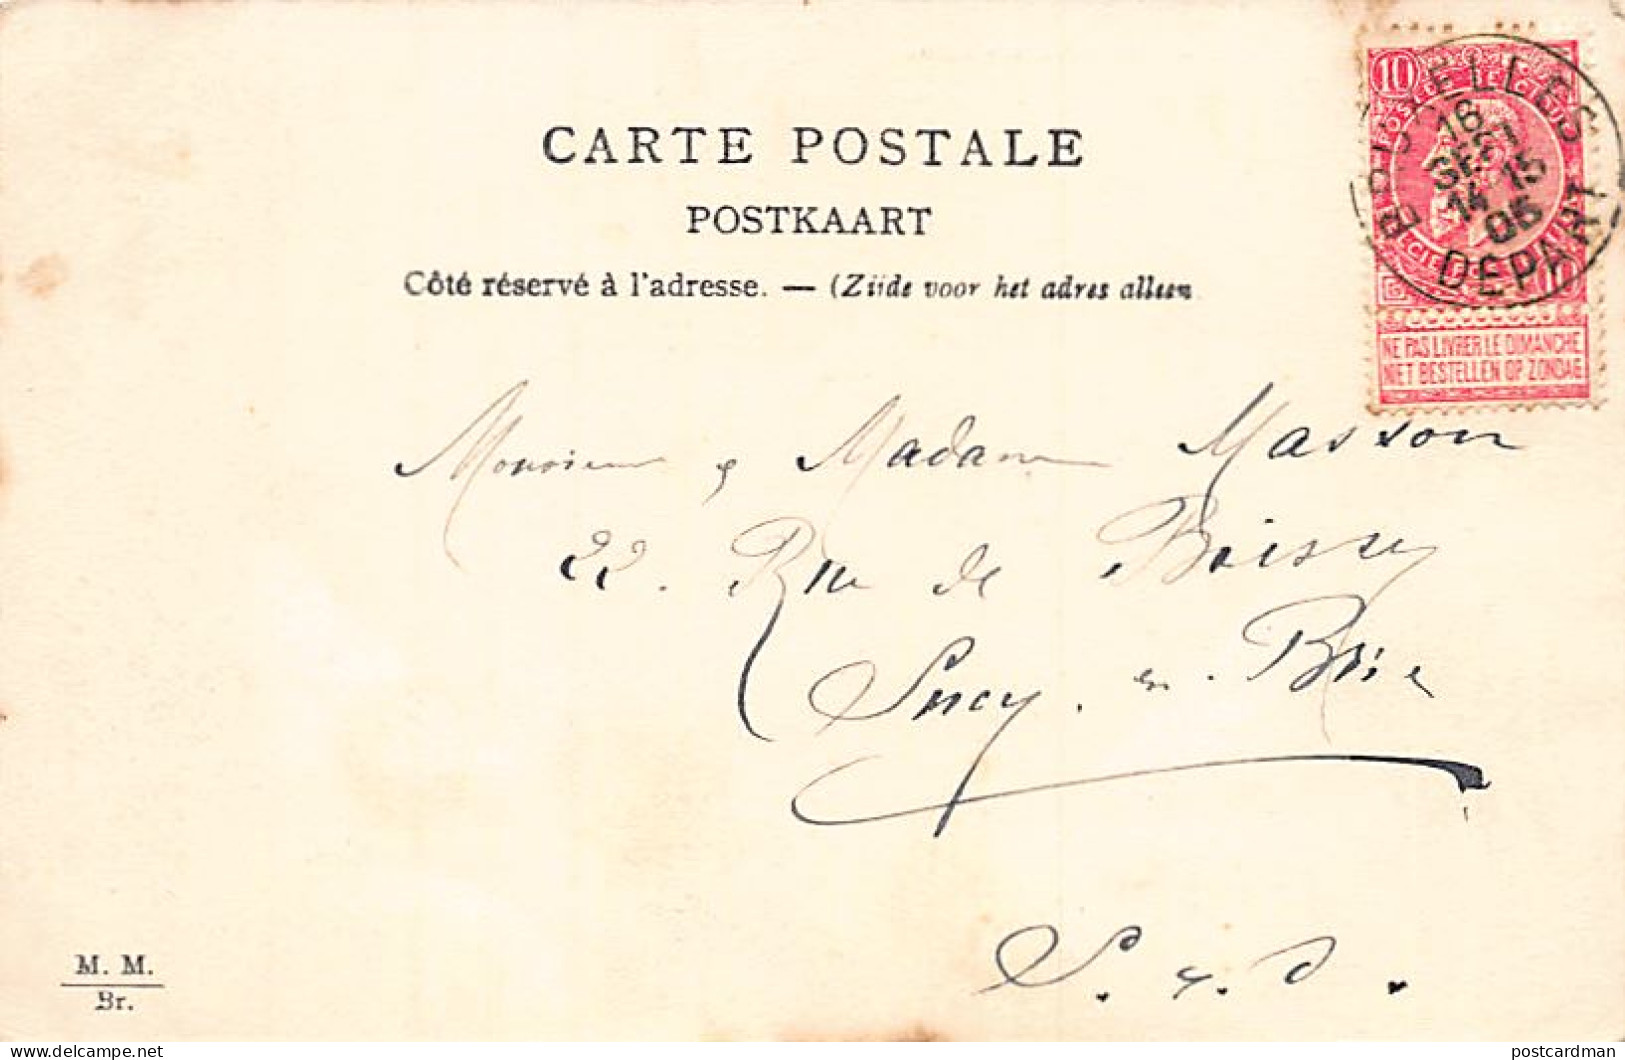 CARTE POSTALE
POSTKAART
Côté réservé à l'adresse. — (Zijde voor het adres alleen
10
BRUXELLES
16
SEPT
14-15
05
DEPART
NE PAS LIVRER LE DIMANCHE
NIET BESTELLEN OP ZONDAG
Monsieur & Madame Masson
22. Rue de Boissy
Sucy. en. Brie
S. & O.
M. M.
Br.
postcardman